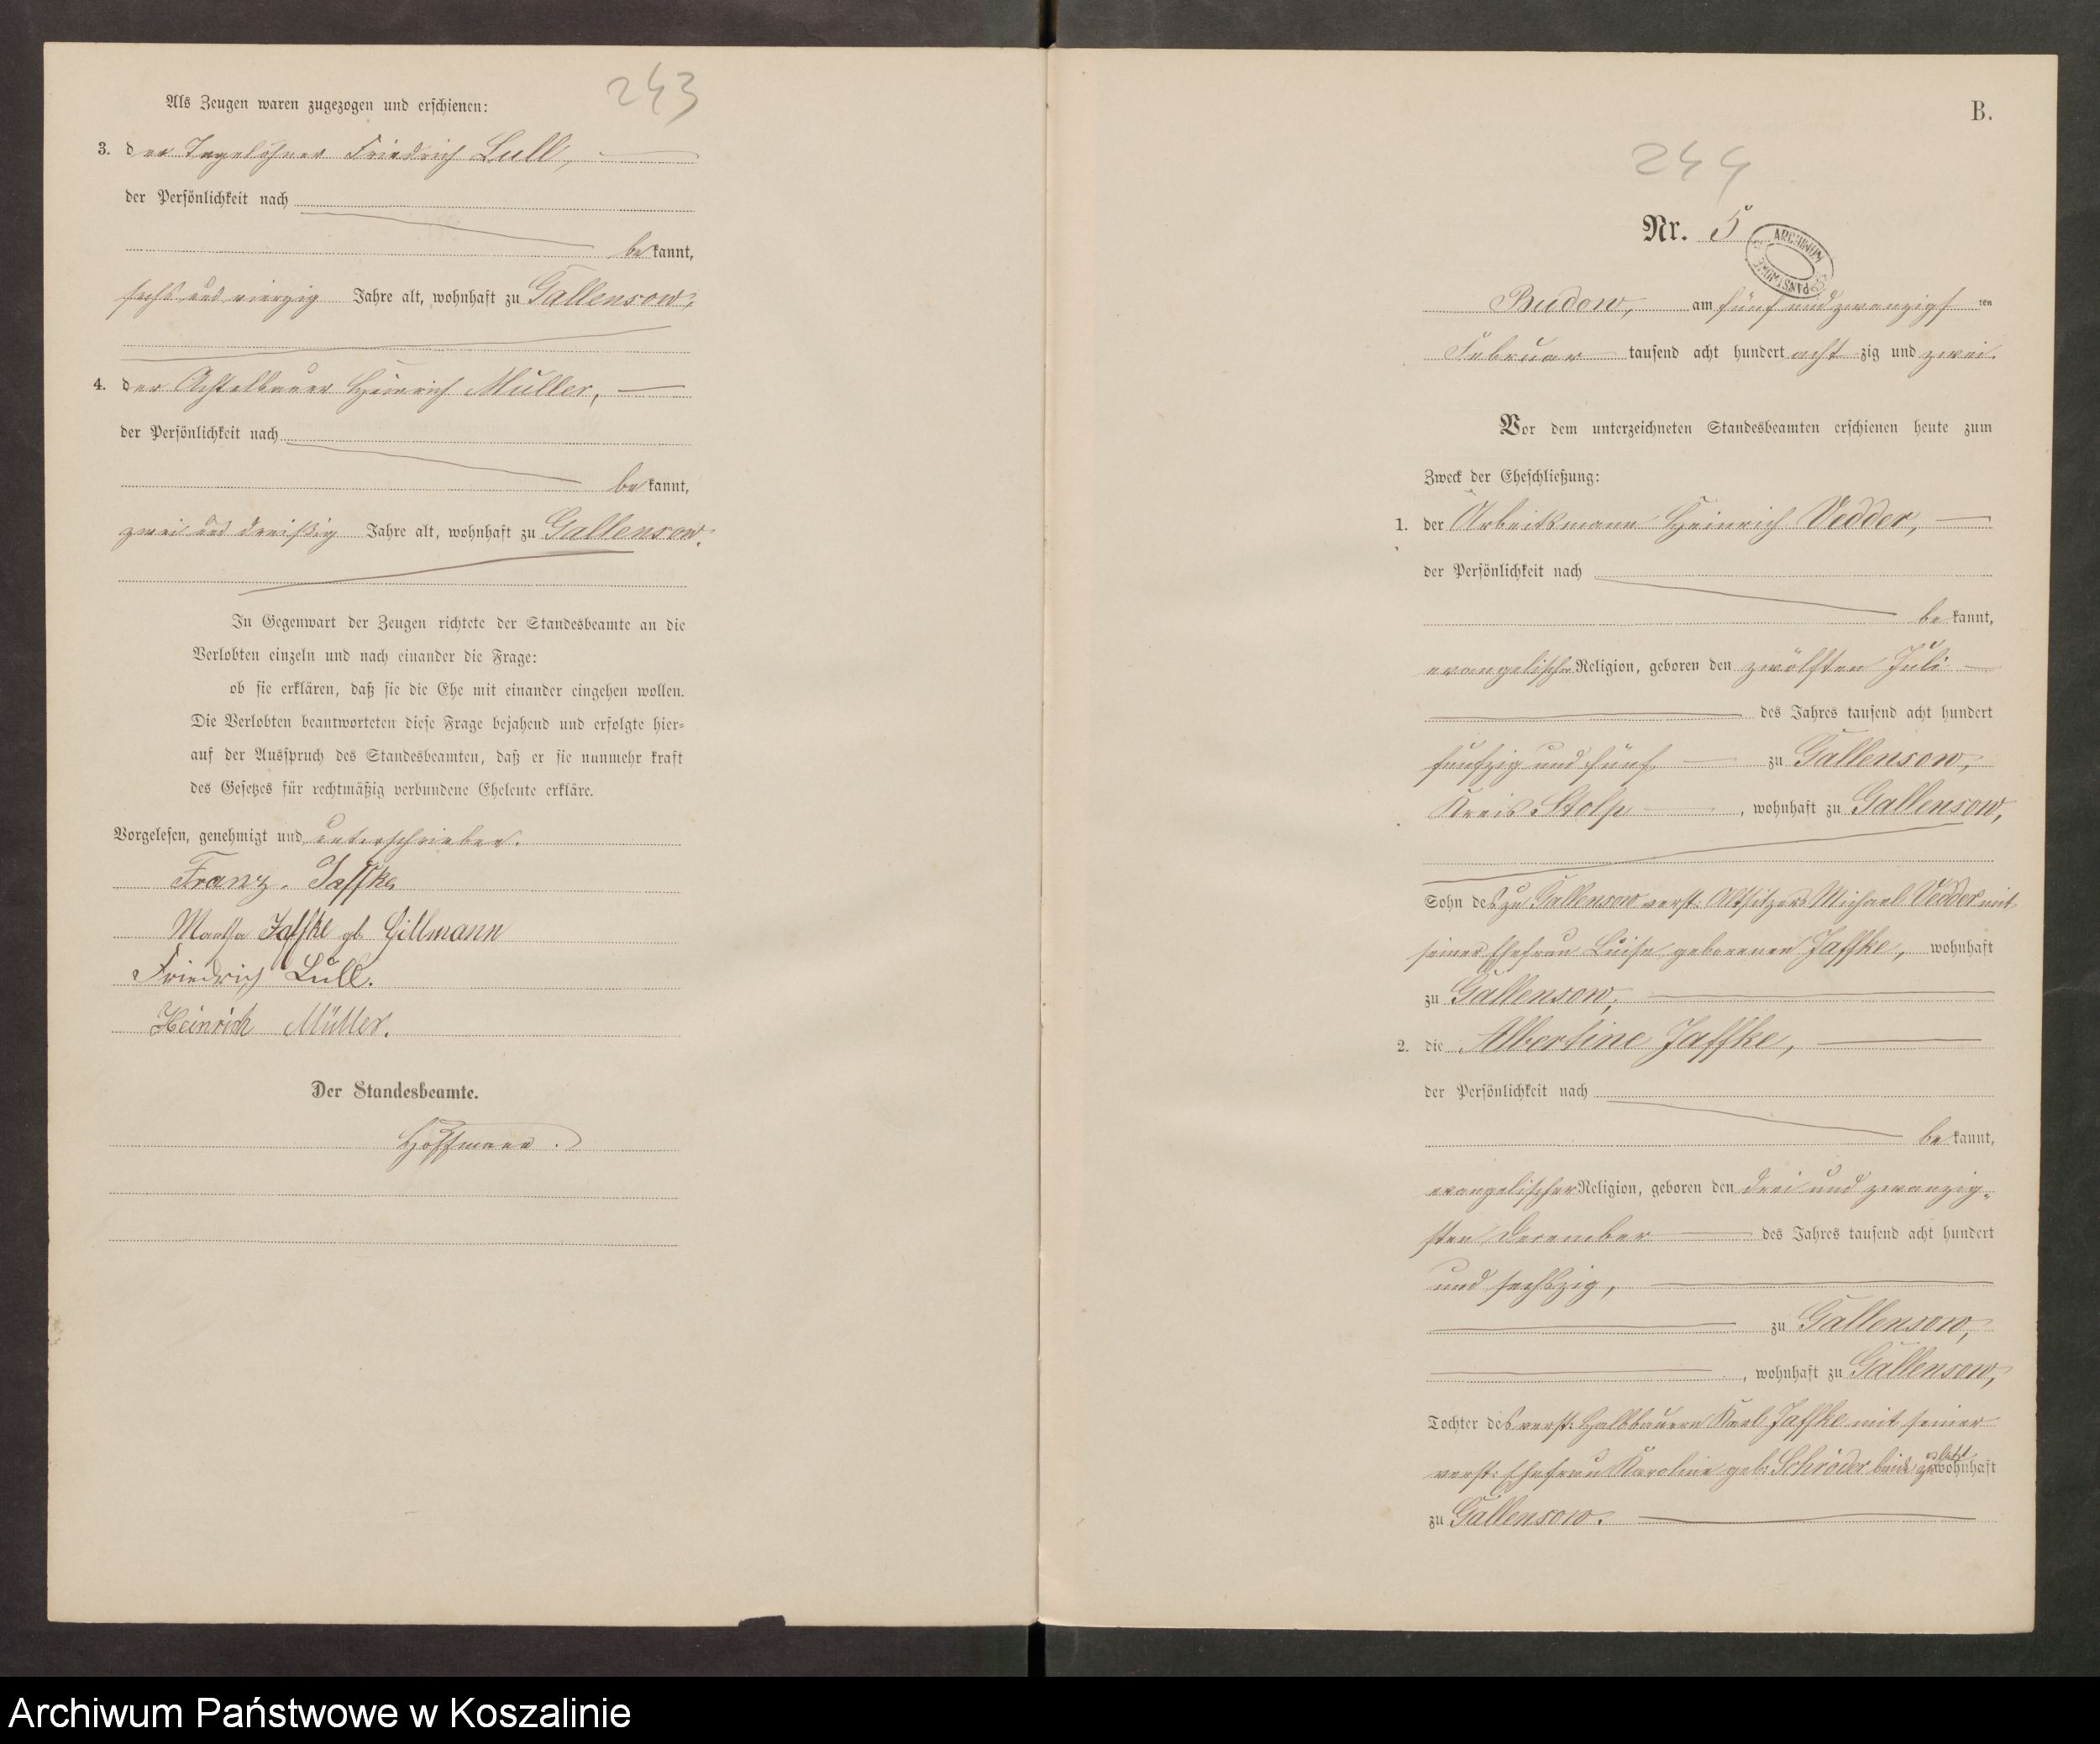 243
Als Zeugen waren zugezogen und erschienen:
3. der Tagelöhner Friedrich Lull,
der Persönlichkeit nach
bekannt,
sechs und vierzig Jahre alt, wohnhaft zu Gallensow,
4. der Achtelbauer Heinrich Müller,
der Persönlichkeit nach
bekannt,
zwei und dreißig Jahre alt, wohnhaft zu Gallensow.
In Gegenwart der Zeugen richtete der Standesbeamte an die
Verlobten einzeln und nach einander die Frage:
ob sie erklären, daß sie die Ehe mit einander eingehen wollen.
Die Verlobten beantworteten diese Frage bejahend und erfolgte hier-
auf der Ausspruch des Standesbeamten, daß er sie nunmehr kraft
des Gesetzes für rechtmäßig verbundene Eheleute erkläre.
Vorgelesen, genehmigt und unterschrieben.
Franz. Jaffke
Jaffke gb. Gillmann
Friedrich Lull.
Heinrich Müller.
Der Standesbeamte.
Hoffmann.
B.
244
Nr. 5
ARCHIWUM PAŃSTWOWE
Budow, am fünf und zwanzigsten
Februar tausend acht hundert acht zig und zwei.
Vor dem unterzeichneten Standesbeamten erschienen heute zum
Zweck der Eheschließung:
1. der Arbeitsmann Heinrich Vedder,
der Persönlichkeit nach
bekannt,
evangelischer Religion, geboren den zwölften Juli
des Jahres tausend acht hundert
fünfzig und fünf zu Gallensow,
Kreis Stolp, wohnhaft zu Gallensow,
Sohn des zu Gallensow verst. Altsitzers Michael Vedder mit
seiner Ehefrau Luise geborenen Jaffke, wohnhaft
zu Gallensow,
2. die Albertine Jaffke,
der Persönlichkeit nach
bekannt,
evangelischer Religion, geboren den drei und zwanzig-
sten December des Jahres tausend acht hundert
und sechszig,
zu Gallensow,
, wohnhaft zu Gallensow,
Tochter des verst. Halbbauern Karl Jaffke mit seiner
verst. Ehefrau Karoline geb. Schröder beide zuletzt wohnhaft
zu Gallensow.
Archiwum Państwowe w Koszalinie